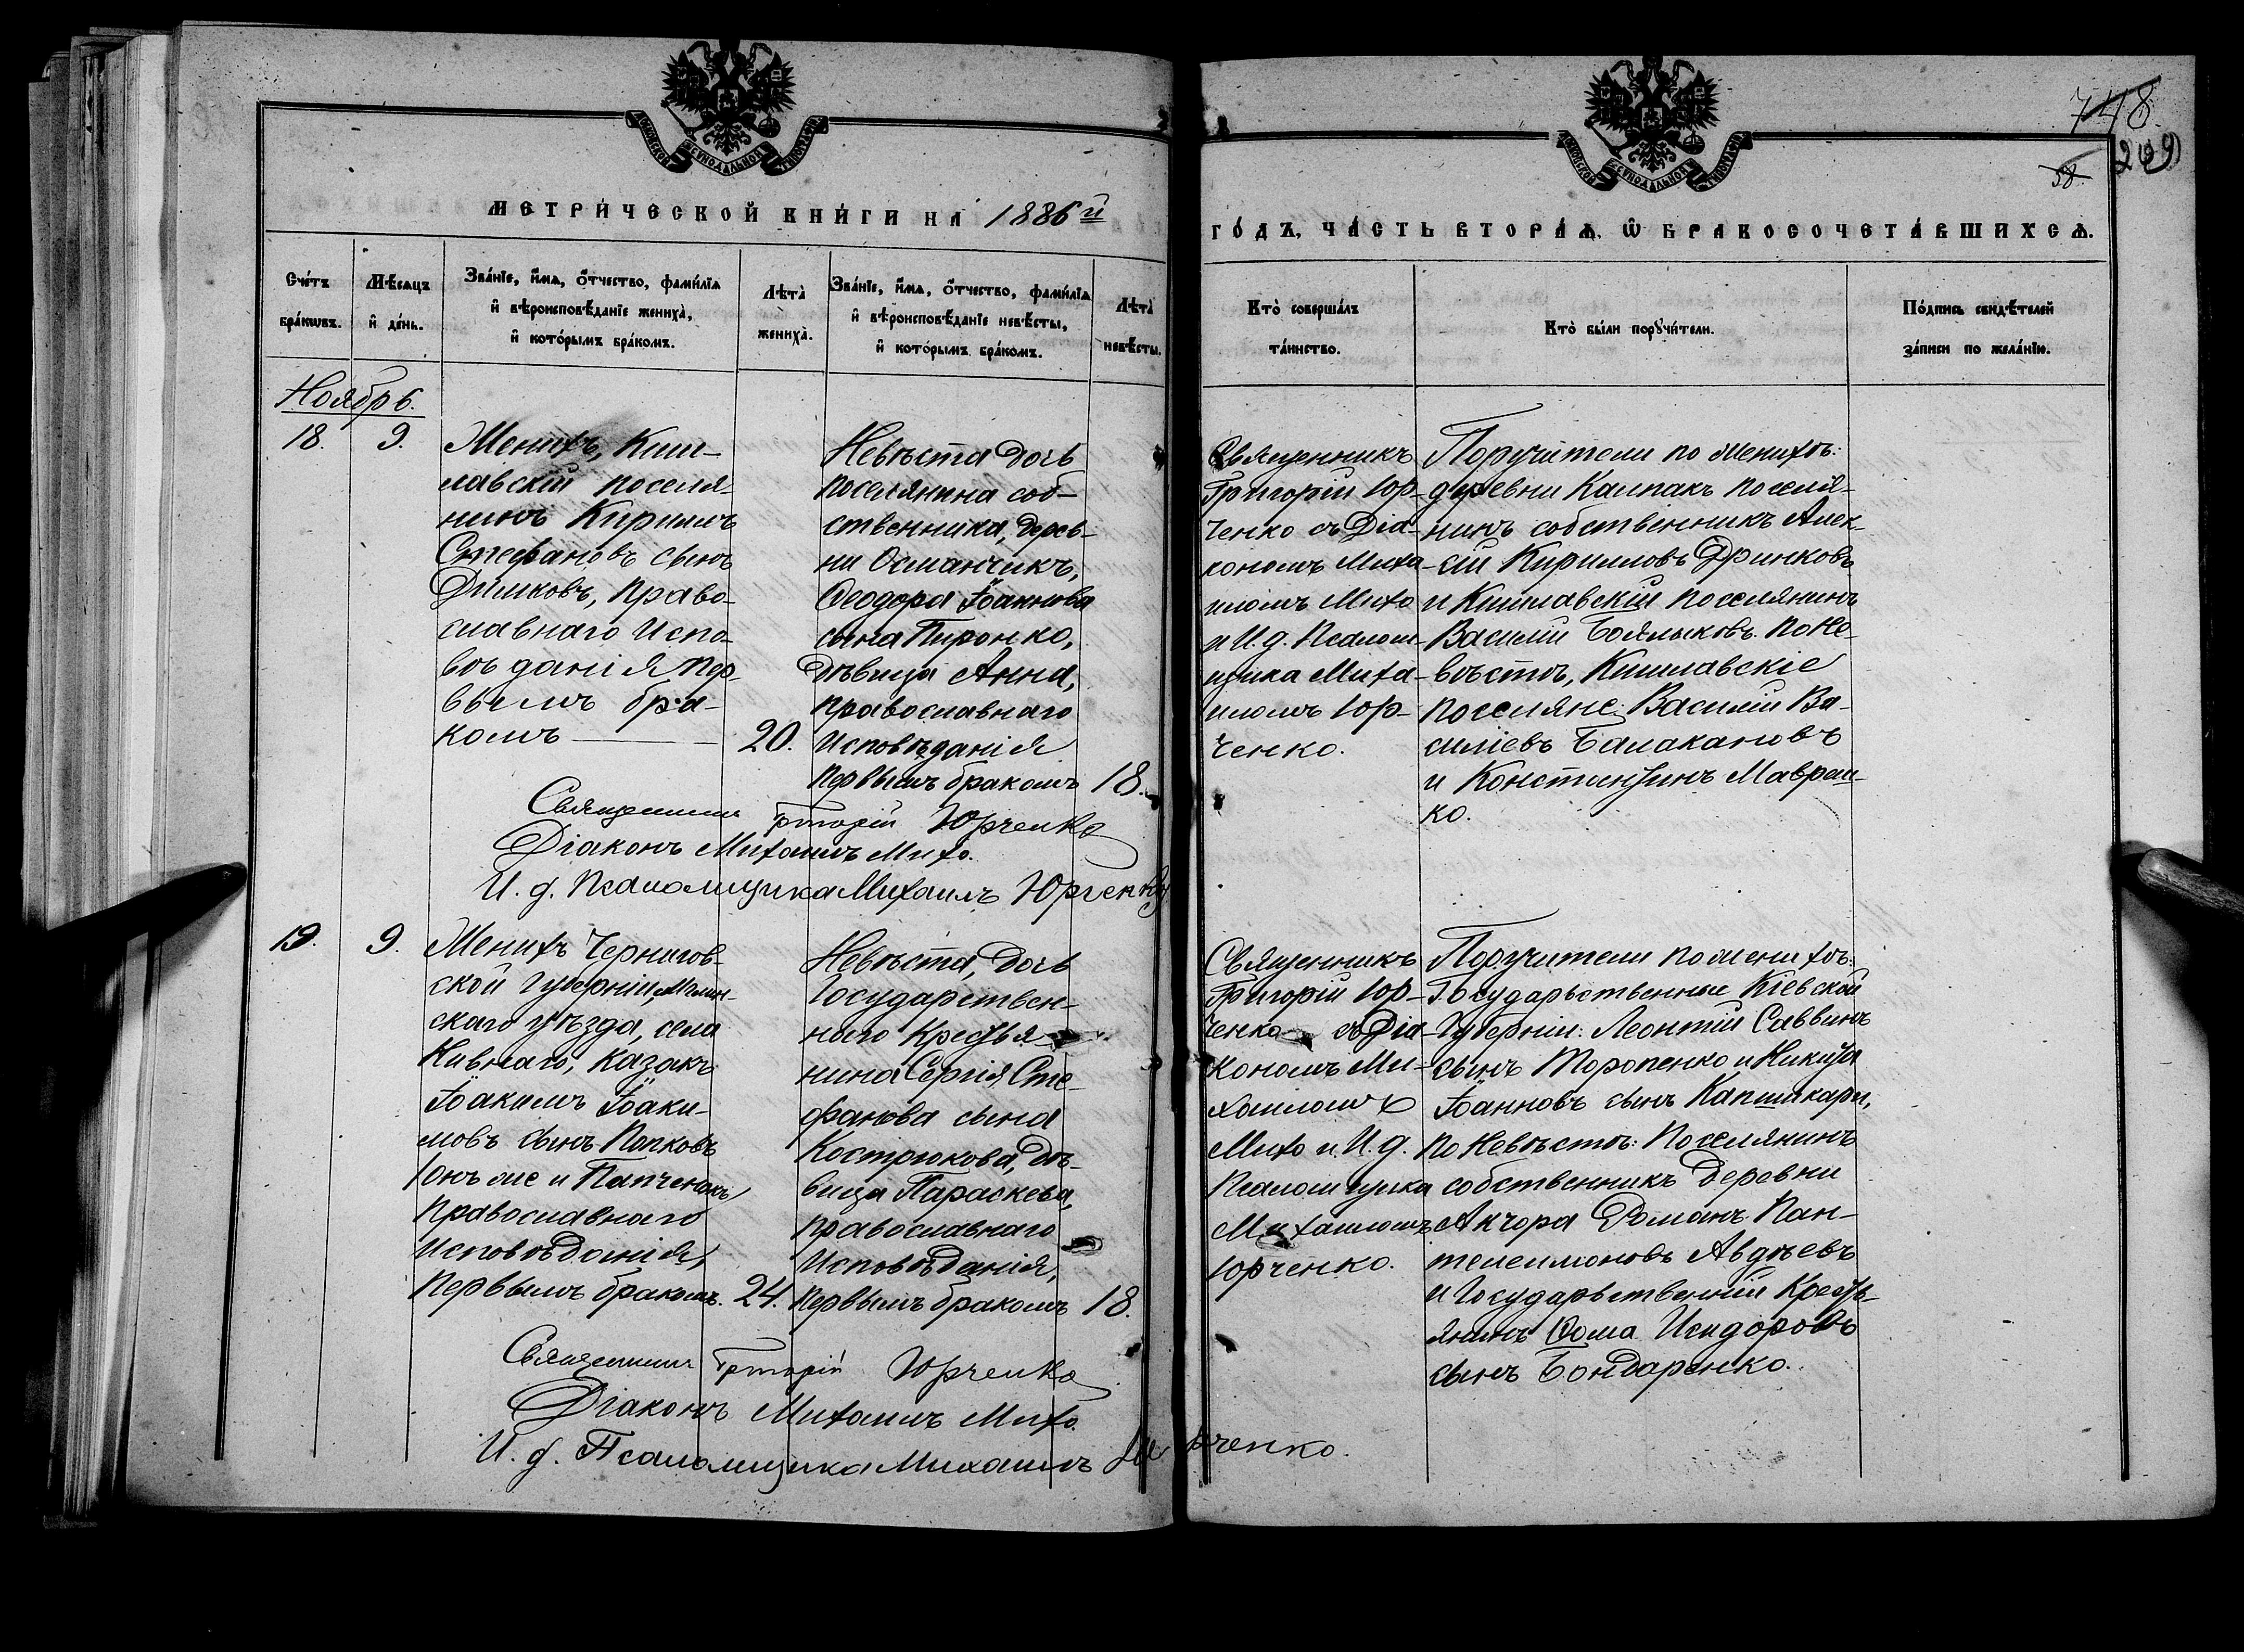 748.
269
58.
МЕТРИ́ЧЕСКОЙ КНИ́ГИ НА 1886й
ГО́ДЪ, ЧА́СТЬ ВТОРА́Ѧ, Ѿ БРАКОСОЧЕТА́ВШИХСѦ.
Сче́тъ
бра́кѡвъ.
Мѣ́сѧцъ
и҆ де́нь.
Зва́нїе, и҆́мѧ, ѻ҆́тчество, фами́лїѧ
и҆ вѣроисповѣ́данїе жениха̀,
и҆ кото́рымъ бра́комъ.
Лѣта̀
жениха̀.
Зва́нїе, и҆́мѧ, ѻ҆́тчество, фами́лїѧ
и҆ вѣроисповѣ́данїе невѣ́сты,
и҆ кото́рымъ бра́комъ.
Лѣта̀
невѣ́сты.
Кто̀ соверша́лъ
та́инство.
Кто̀ бы́ли поручи́тели.
По́дпись свидѣ́телей
за́писи по жела́нїю.
Ноябрь.
18.
9.
Женихъ, Киш-
лавскій поселя-
нинъ Кирилъ
Стефановъ сынъ
Димковъ, право-
славнаго испо-
вѣданія пер-
вымъ бра-
комъ
20.
Невѣста дочь
поселянина соб-
ственника, дерев-
ни Османчикъ,
Ѳеодора Іоаннова
сына Пиронко,
дѣвица Анна,
православнаго
исповѣданія
первымъ бракомъ
18.
Священникъ
Григорій Юр-
ченко съ Діа-
кономъ Миха-
иломъ Михо
и И. д. Псалом-
щика Миха-
иломъ Юр-
ченко.
Поручители по женихѣ:
деревни Калпакъ поселя-
нинъ собственникъ Алек-
сій Кирилловъ Дринковъ
и Кишлавскій поселянинъ
Василій Боялыковъ. По не-
вѣстѣ, Кишлавскіе
поселяне: Василій Ва-
силіевъ Балакановъ
и Константинъ Маврам-
ко.
Священникъ Григорій Юрченко
Діаконъ Михаилъ Михо.
И. д. Псаломщика Михаилъ Юрченко
19.
9.
Женихъ Чернигов-
ской Губерніи, Мглин-
скаго уѣзда, села
Нивнаго, Казакъ
Іоакимъ Іоаки-
мовъ сынъ Папковъ
Онъ же и Папченокъ,
православнаго
исповѣданія,
первымъ бракомъ.
24.
Невѣста, дочь
Государствен-
наго Крестья-
нина Сергія Сте-
фанова сына
Кострюкова, дѣ-
вица Параскева,
православнаго
исповѣданія,
первымъ бракомъ
18.
Священникъ
Григорій Юр-
ченко съ Діа-
кономъ Ми-
хаиломъ
Михо и И. д.
Псаломщика
Михаиломъ
Юрченко.
Поручители по женихѣ:
Государственные Кіевской
Губерніи: Леонтій Саввинъ
сынъ Торопенко и Никита
Іоанновъ сынъ Капшикари,
по Невѣстѣ: Поселянинъ
собственникъ деревни
Акчора Романъ Пан-
телеимоновъ Авдѣевъ
и Государственній Кресть-
янинъ Ѳома Исидоровъ
сынъ Бондаренко.
Священникъ Григорій Юрченко
Діаконъ Михаилъ Михо.
И. д. Псаломщика Михаилъ Юрченко.